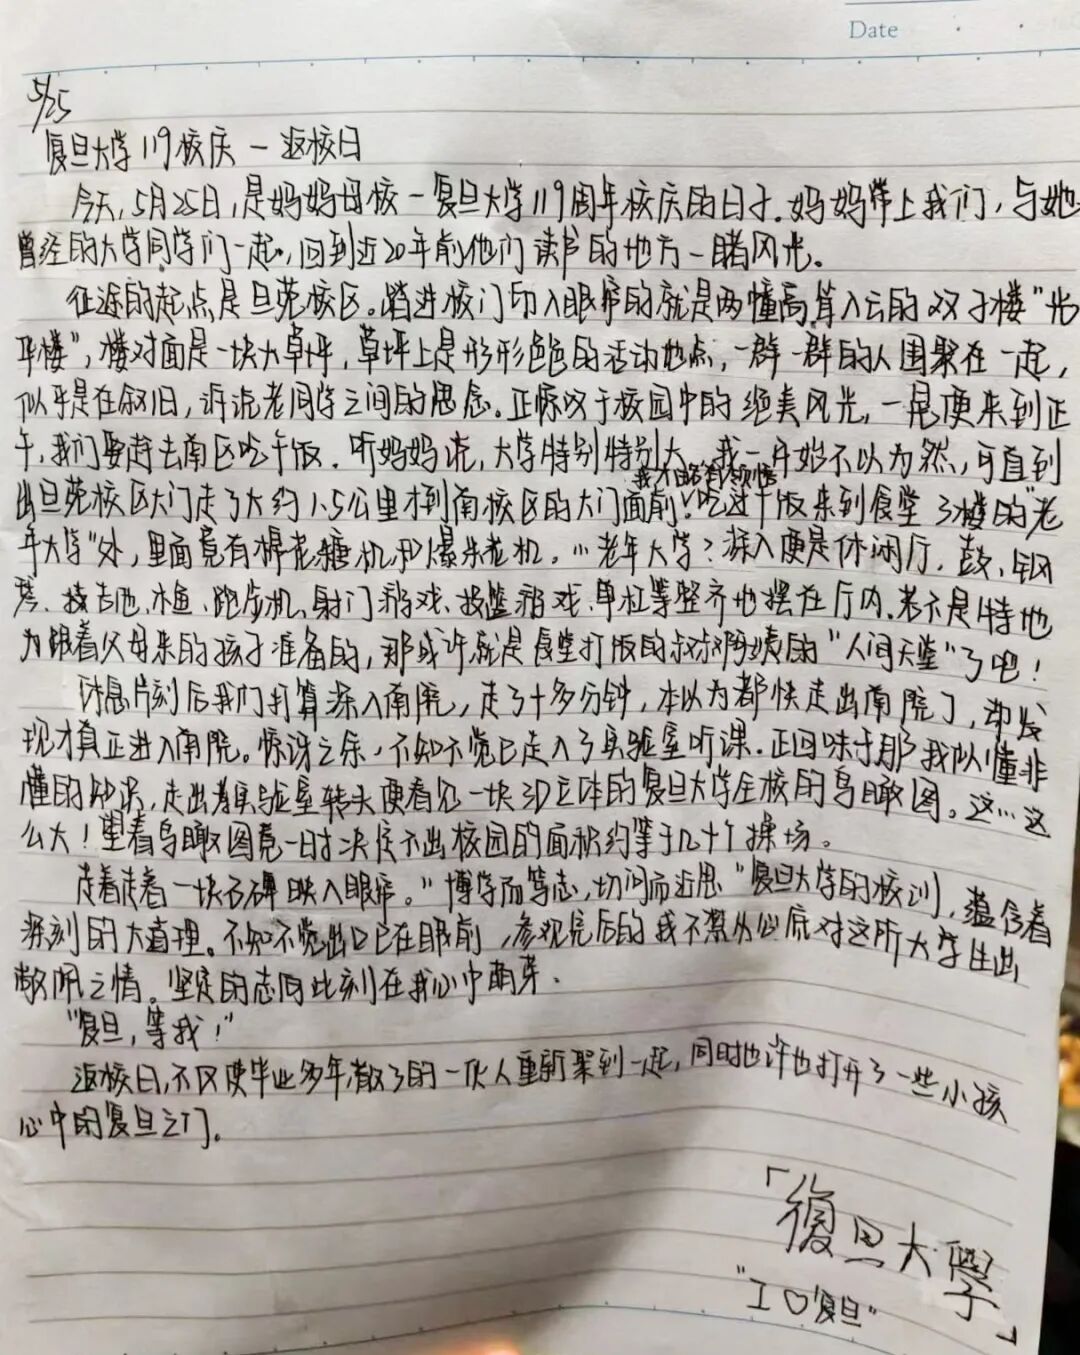 Date
5/25
复旦大学119校庆－返校日
今天,5月25日,是妈妈母校－复旦大学119周年校庆的日子.妈妈带上我们,与她
曾经的大学同学们一起,回到近20年前他们读书的地方一睹风光。
征途的起点是旦苑校区。踏进校门印入眼帘的就是两幢高耸入云的双子楼"光
华楼",楼对面是一块大草坪,草坪上是形形色色的活动地点,一群一群的人围聚在一起,
似乎是在叙旧,诉说老同学之间的思念。正惊叹于校园中的绝美风光,一晃便来到正
午,我们要赶去南区吃午饭.听妈妈说,大学特别特别大,我一开始不以为然,可直到
我才略有领悟
出旦苑校区大门走了大约1.5公里才到南校区的大门面前!吃过午饭来到食堂3楼的"老
年大学"处,里面竟有棉花糖机和爆米花机。…老年大学?深入便是休闲厅.鼓、钢
琴、吉他、木鱼、跑步机、射门游戏、投篮游戏、单杠等整齐地摆在厅内.若不是特地
为跟着父母来的孩子准备的,那或许就是食堂打饭的叔叔阿姨的"人间天堂"了吧!
休息片刻后我们打算深入南院,走了十多分钟,本以为都快走出南院了,却发
现才真正进入南院。惊讶之余,不知不觉已走入了实验室听课.正回味于那我似懂非
懂的知识,走出着实验室转头便看见一块3D立体的复旦大学全校的鸟瞰图。这…这
么大!望着鸟瞰图竟一时决定不出校园的面积约等于几十个操场。
走着走着一块石碑映入眼帘。"博学而笃志,切问而近思"复旦大学的校训,蕴含着
深刻的大道理。不知不觉出口已在眼前,参观完后的我不禁从心底对这所大学生出
敬佩之情。坚定的志向此刻在我心中萌芽.
"复旦,等我!"
返校日,不仅使毕业多年散了的一伙人重新聚到一起,同时也许也打开了一些小孩
心中的复旦之门。
「復旦大學」
"I♡复旦"